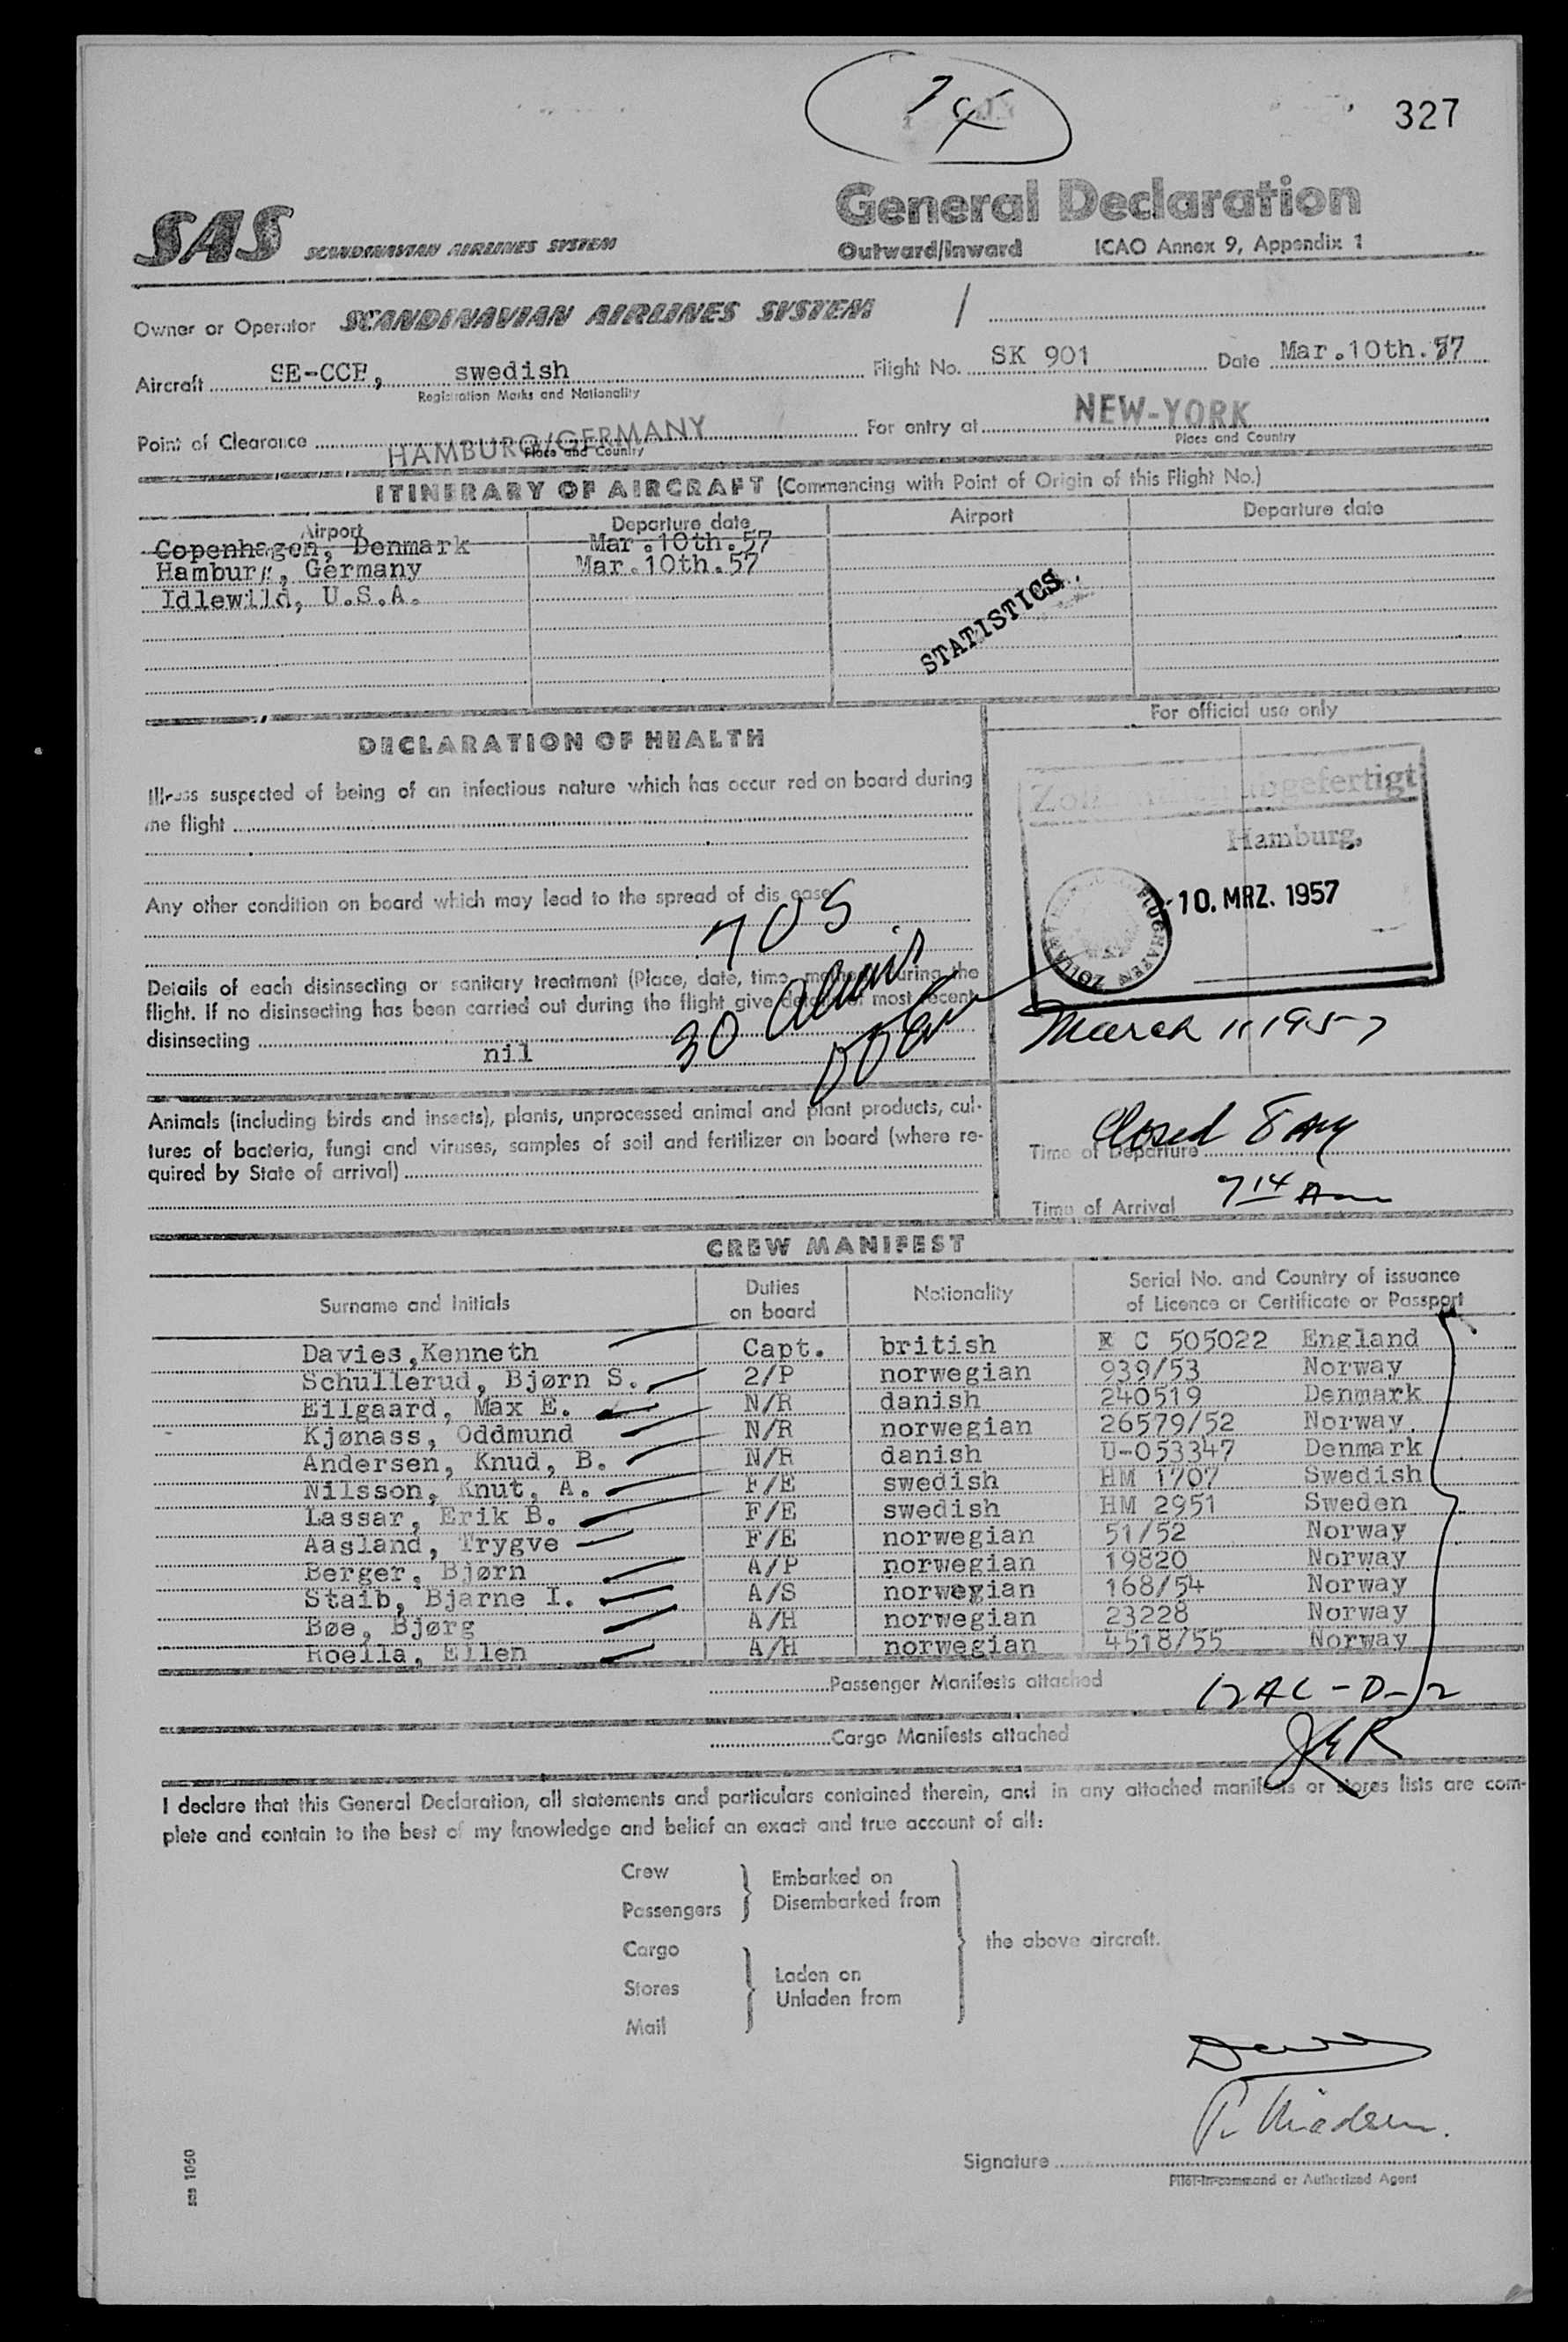 327
SAS SCANDINAVIAN AIRLINES SYSTEM
General Declaration
Outward/Inward ICAO Annex 9, Appendix 1
Owner or Operator SCANDINAVIAN AIRLINES SYSTEM /
Aircraft SE-CCP, swedish Flight No. SK 901 Date Mar.10th.57
Registration Marks and Nationality
Point of Clearance HAMBURG/GERMANY For entry at NEW-YORK
Place and Country Place and Country
ITINERARY OF AIRCRAFT (Commencing with Point of Origin of this Flight No.)
Airport Departure date Airport Departure date
Copenhagen, Denmark Mar.10th.57
Hamburg, Germany Mar.10th.57
Idlewild, U.S.A.
STATISTICS
For official use only
DECLARATION OF HEALTH
Illness suspected of being of an infectious nature which has occur red on board during
the flight
Any other condition on board which may lead to the spread of dis ease
705
Details of each disinsecting or sanitary treatment (Place, date, time, method) during the
flight. If no disinsecting has been carried out during the flight give details of most recent
disinsecting
nil
30
abgefertigt
Hamburg,
10. MRZ. 1957
March 11 1957
Animals (including birds and insects), plants, unprocessed animal and plant products, cul-
tures of bacteria, fungi and viruses, samples of soil and fertilizer on board (where re-
quired by State of arrival)
Closed 8 AM
Time of Departure
Time of Arrival 7 14 Am
CREW MANIFEST
Surname and Initials Duties on board Nationality Serial No. and Country of issuance of Licence or Certificate or Passport
Davies,Kenneth Capt. british C 505022 England
Schullerud, Bjørn S. 2/P norwegian 939/53 Norway
Eilgaard, Max E. N/R danish 240519 Denmark
Kjønass, Oddmund N/R norwegian 26579/52 Norway
Andersen, Knud, B. N/R danish U-053347 Denmark
Nilsson, Knut, A. F/E swedish HM 1707 Swedish
Lassar, Erik B. F/E swedish HM 2951 Sweden
Aasland, Trygve F/E norwegian 51/52 Norway
Berger, Bjørn A/P norwegian 19820 Norway
Staib, Bjarne I. A/S norwegian 168/54 Norway
Bøe, Bjørg A/H norwegian 23228 Norway
Roella, Ellen A/H norwegian 4518/55 Norway
Passenger Manifests attached
12 AC - D-2
Cargo Manifests attached
I declare that this General Declaration, all statements and particulars contained therein, and in any attached manifests or stores lists are com-
plete and contain to the best of my knowledge and belief an exact and true account of all:
Crew
Passengers
Embarked on
Disembarked from
Cargo
Stores
Mail
Laden on
Unladen from
the above aircraft.
Signature
Pilot-in-command or Authorized Agent
SAS 1060